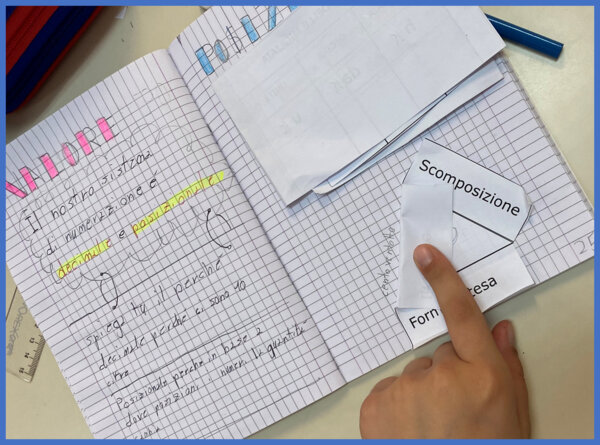 VALORI
Il nostro sistema
di numerazione è
decimale e posizionale.
spiega tu il perché
decimale perché ci sono 10
cifre
Posizionale perché in base a
dove posizioni i numeri la quantità
POSIZI
Scomposizione
Form esa
25